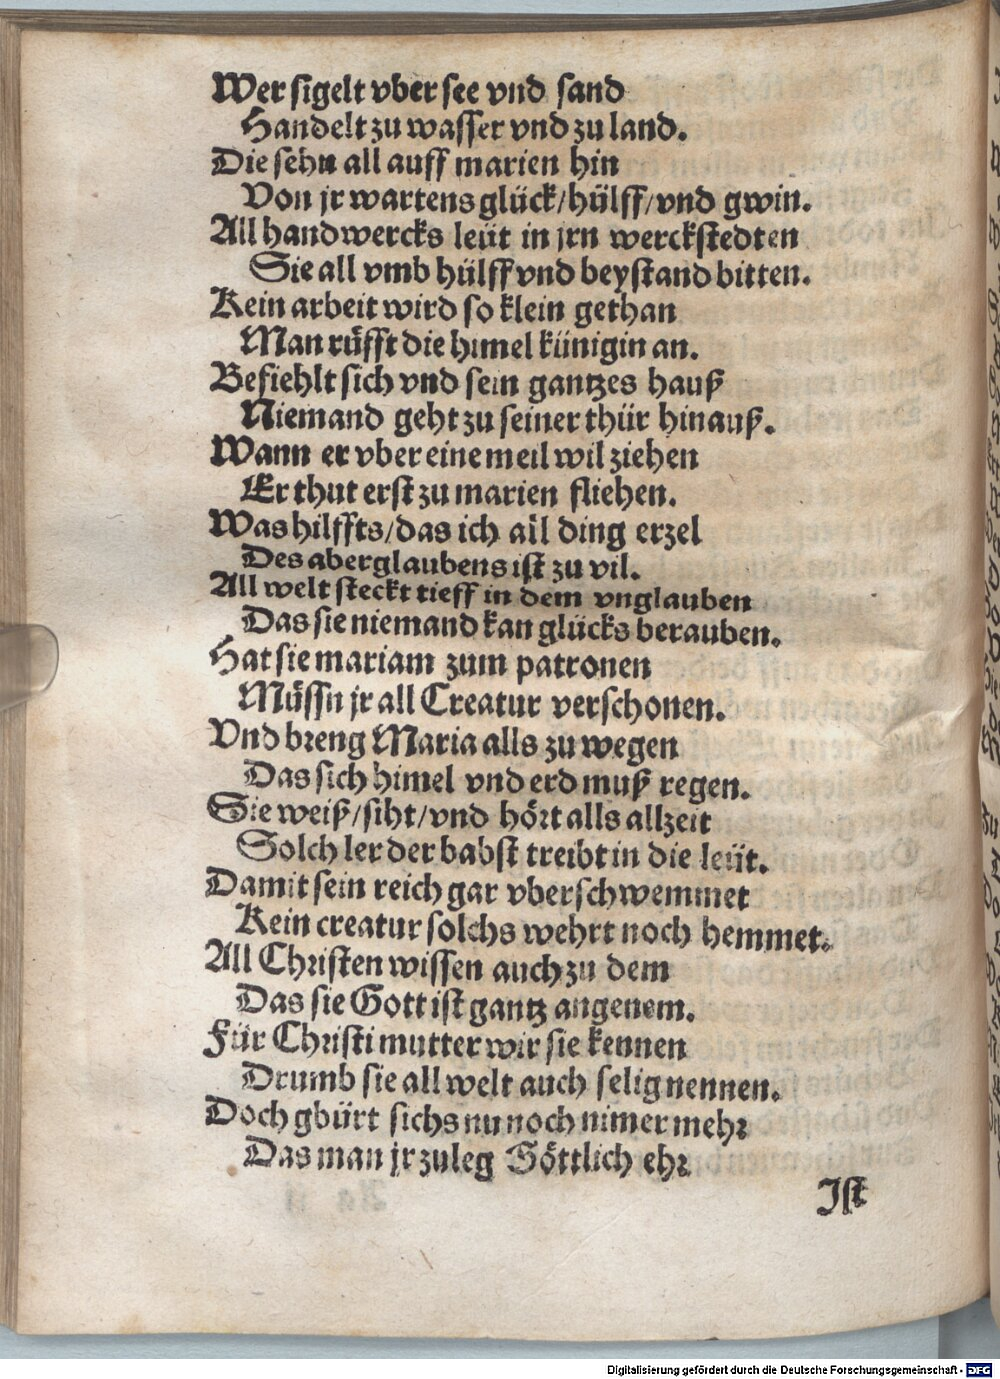 Wer sigelt vber see vnd sand
Handelt zu wasser vnd zu land.
Die sehn all auff marien hin
Von jr wartens glück/hülff/vnd gwin.
All handwercks leüt in jrn werckstedten
Sie all vmb hülff vnd beystand bitten.
Kein arbeit wird so klein gethan
Man rüfft die himel künigin an.
Befiehlt sich vnd sein gantzes hauß
Niemand geht zu seiner thür hinauß.
Wann er vber eine meil wil ziehen
Er thut erst zu marien fliehen.
Was hilffts/das ich all ding erzel
Des aberglaubens ist zu vil.
All welt steckt tieff in dem vnglauben
Das sie niemand kan glücks berauben.
Hat sie mariam zum patronen
Müssn jr all Creatur verschonen.
Vnd breng Maria alls zu wegen
Das sich himel vnd erd muß regen.
Sie weiß/siht/vnd hört alls allzeit
Solch ler der babst treibt in die leüt.
Damit sein reich gar vberschwemmet
Kein creatur solchs wehrt noch hemmet.
All Christen wissen auch zu dem
Das sie Gott ist gantz angenem.
Für Christi mutter wir sie kennen
Drumb sie all welt auch selig nennen.
Doch gbürt sichs nu noch nimer mehr
Das man jr zuleg Göttlich ehr
Ist
Digitalisierung gefördert durch die Deutsche Forschungsgemeinschaft - DFG